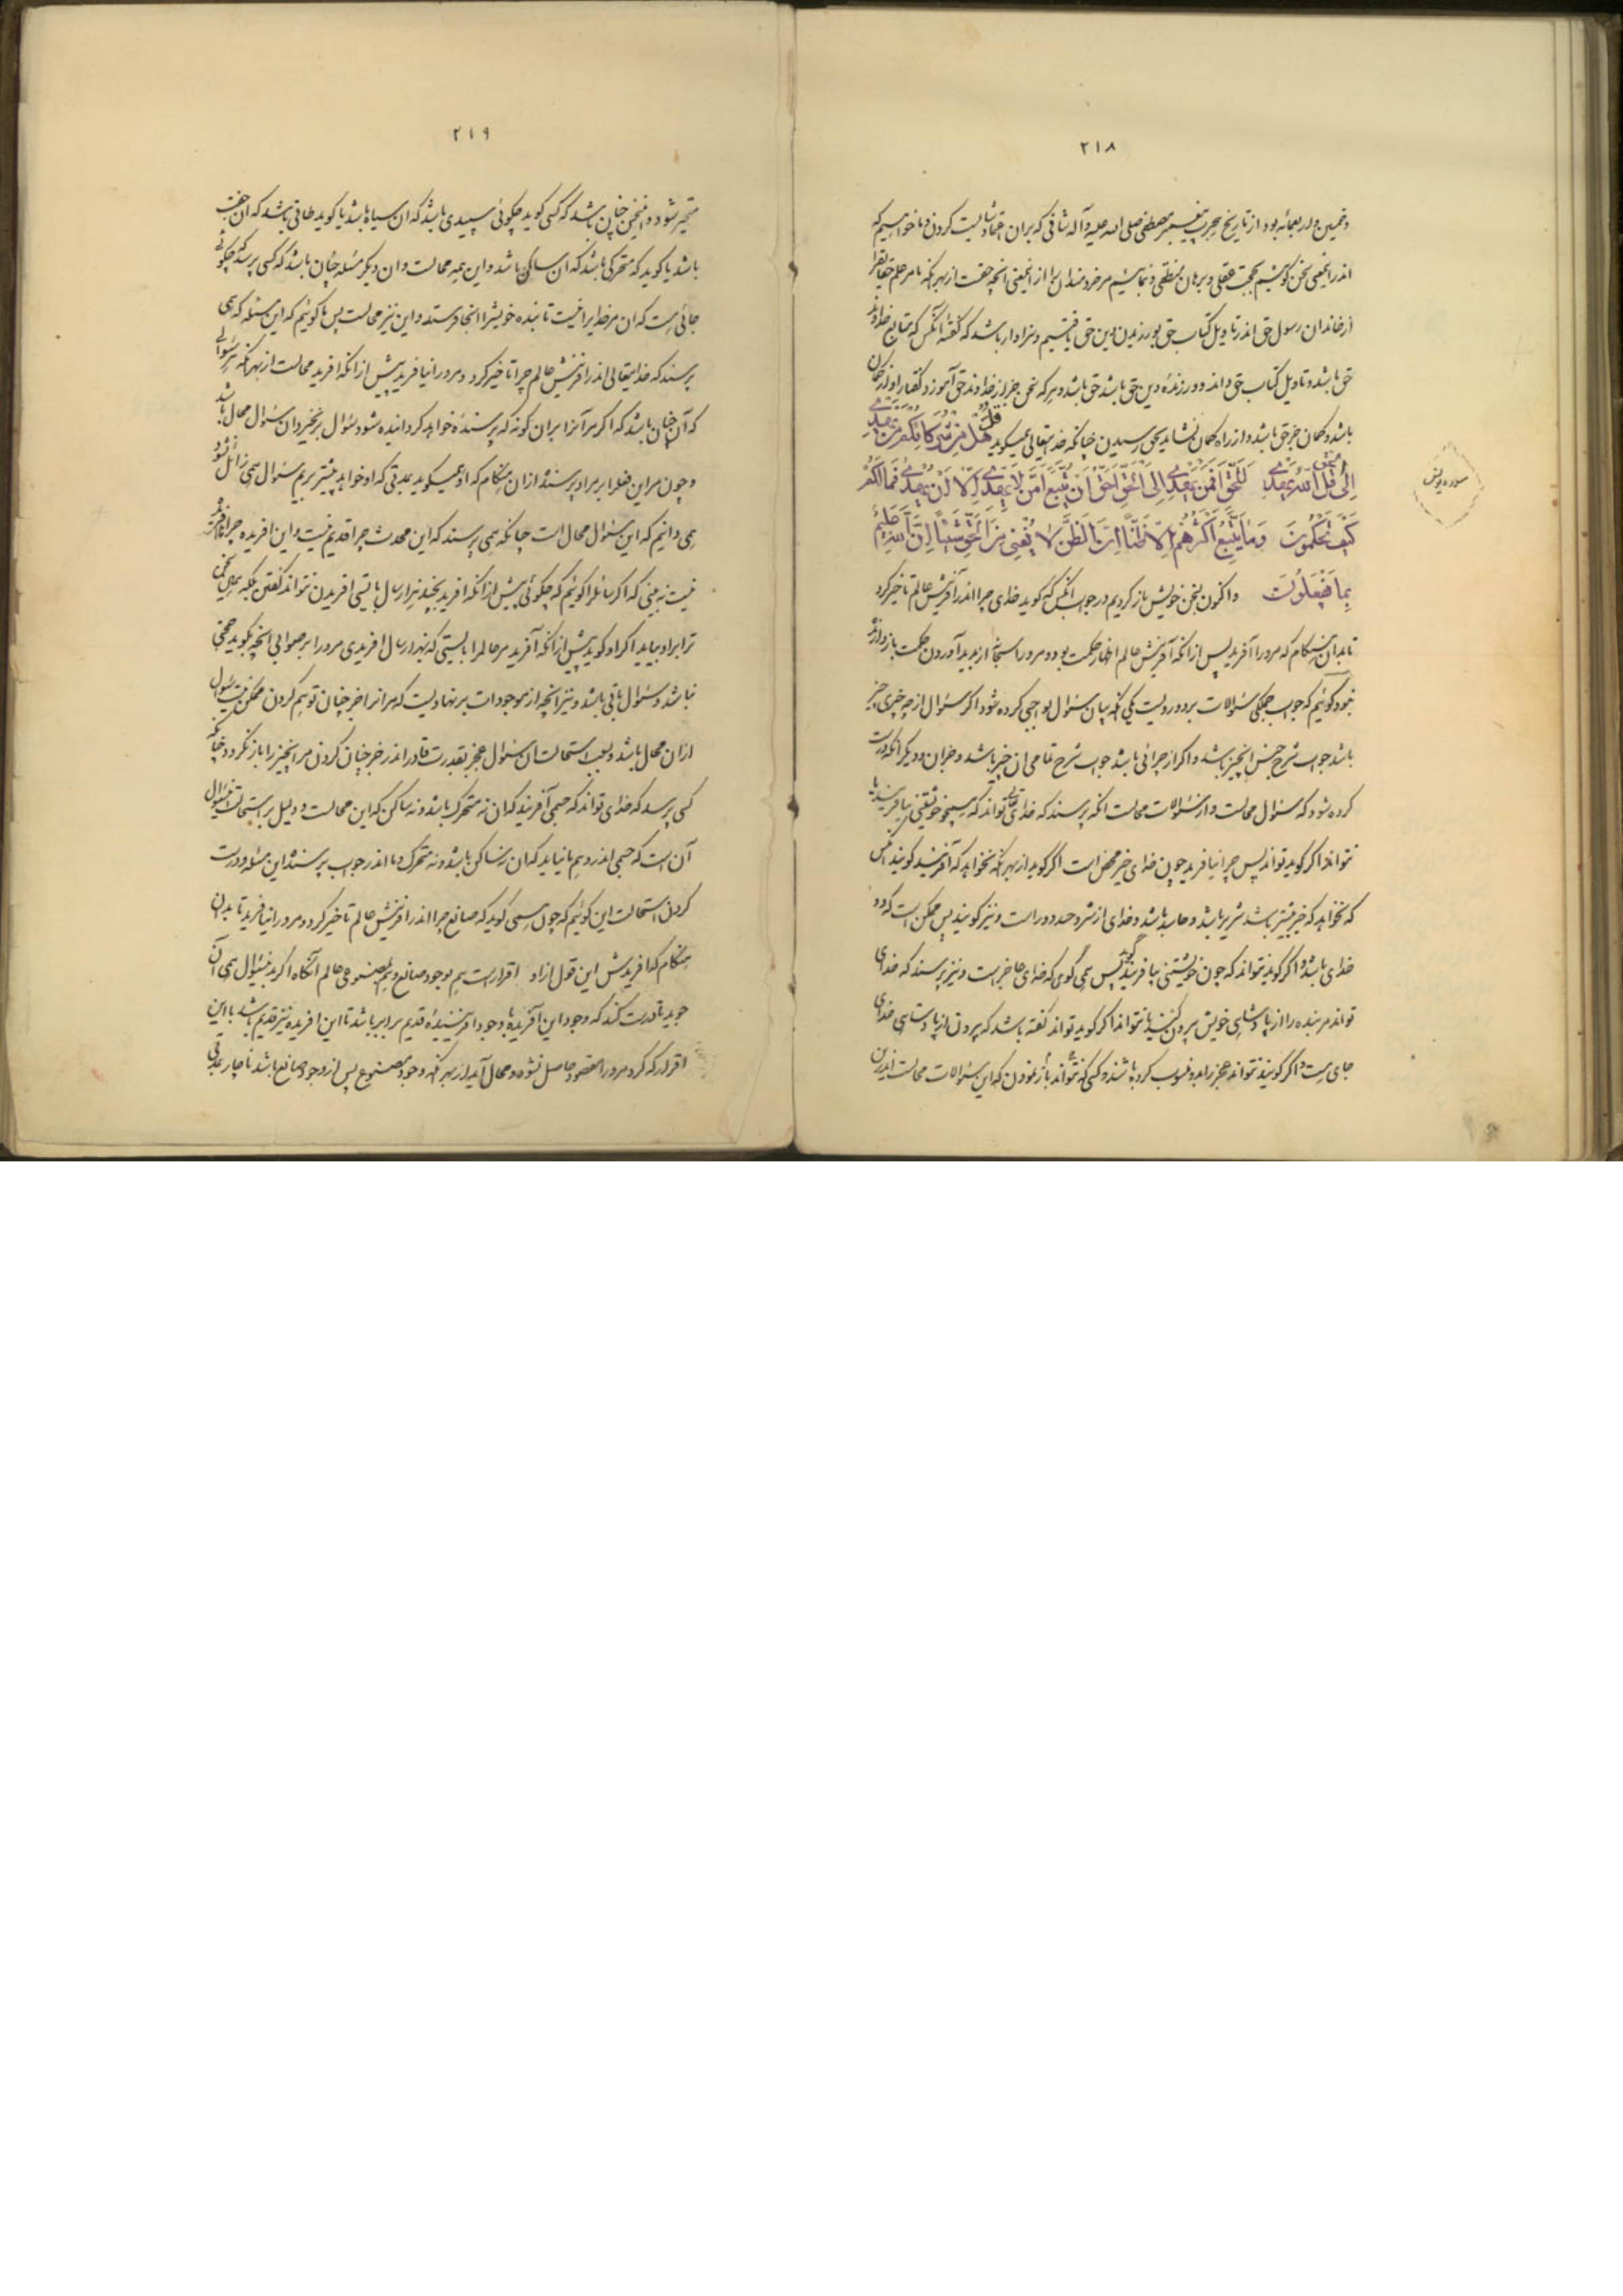 ۲۱۸
و خمسین و اربعمائه بود از تاریخ هجرت پیغمبر مصطفی صلی الله علیه و آله شافی که بران اعتماد شایست کردن و ما خواهیم که
اندر این معنی سخن گوئیم بحجت عقلی و برهان منطقی و بنمائیم مر خردمندان را از این معنی آنچه حقست از بهر آنکه ما مر علم حقایق را
از خاندان رسول حق اندر تاویل کتاب حق بورزیدن دین حق یافتیم و سزاوار باشد که گفته آنکس که متابع خداوند
حق باشد و تاویل کتاب حق داند و ورزنده دین حق باشد حق باشد و هر که سخن جز از خداوند حق آموزد گفتار او از گمان
باشد و گمان جز حق باشد و از راه گمان نشاید بحق رسیدن چنانکه خدایتعالی همیگوید قُلْ هَلْ مِنْ شُرَكَائِكُمْ مَنْ يَهْدِي
إِلَى الْحَقِّ قُلِ اللَّهُ يَهْدِي لِلْحَقِّ أَفَمَنْ يَهْدِي إِلَى الْحَقِّ أَحَقُّ أَنْ يُتَّبَعَ أَمَّنْ لَا يَهِدِّي إِلَّا أَنْ يُهْدَى فَمَا لَكُمْ
كَيْفَ تَحْكُمُونَ وَمَا يَتَّبِعُ أَكْثَرُهُمْ إِلَّا ظَنًّا إِنَّ الظَّنَّ لَا يُغْنِي مِنَ الْحَقِّ شَيْئًا إِنَّ اللَّهَ عَلِيمٌ
بِمَا يَفْعَلُونَ و اکنون بسخن خویش باز گردیم در جواب آنکس که گوید خدای چرا اندر آفرینش عالم تاخیر کرد
تا بدان هنگام که مرورا آفرید پس از آنکه آفرینش عالم اظهار حکمت بود و مرورا سبحانه از پدید آوردن حکمت باز دارنده
نبود گوئیم که جواب جملگی سئوالات بر دو رویست یکی آنکه بیان سئوال بواجبی کرده شود اگر سئوال از چه چیزی چیز
باشد جواب شرح جنس آنچیز باشد و اگر از چرائی باشد جواب شرح تمامی آن چیز باشد و جز آن و دیگر آنکه درست
کرده شود که سئوال محالست و از سئوالات محالست آنکه پرسند که خدای تعالی تواند که همچو خویشتنی بیافریند یا
نتواند اگر گوید تواند پس چرا نیافرید چون خدای خیر محض است اگر گوید از بهر آنکه نخواهد که آفریند گویند آنکس
که نخواهد که خیر بیشتر باشد شریر باشد و حاسد باشد و خدای از شر و حسد دور است و نیز گویند پس ممکن است که دو
خدای باشد و اگر گوید نتواند که چون خویشتنی بیافریند گویند پس همی گوی که خدای عاجز است و نیز پرسند که خدای
تواند مر بنده را از پادشاهی خویش بیرون کند یا نتواند اگر گوید تواند گفته باشد که بیرون از پادشاهی خدای
جای هست و اگر گویند نتواند عجز را بدو منسوب کرده باشند و کسی که نتواند باز نمودن که این سئوالات محالست اندرین
سوره یونس
۲۱۹
متحیر شود و اینچنین چنان باشد که کسی گوید چگوئی سپیدی باشد که آن سیاه باشد یا گوید طاقی باشد که آن جفت
باشد یا گوید که متحرکی باشد که آن ساکن باشد و این همه محالست و آن دیگر مسئله چنان باشد که کسی پرسد که چگوئی
جائی هست که آن مر خدایرا نیست تا بنده خویش را آنجا فرستد و این نیز محالست پس ما گوئیم که این مسئله که همی
پرسند که خدایتعالی اندر آفرینش عالم چرا تاخیر کرد و مرورا نیافرید پیش از آنکه آفرید محالست از بهر آنکه هر سئوالی
که آن چنان باشد که اگر مر آنرا بران گونه که پرسنده خواهد گردانیده شود سئوال برنخیزد آن سئوال محال باشد
و چون مر این فعل را بر مراد پرسنده از آن هنگام که او همیگوید بمدتی که او خواهد پیشتر بریم سئوال همی زائل نشود
همی دانیم که این سئوال محال است چنانکه همی پرسند که این محدث چرا قدیم نیست و این آفریده چرا ناآفریده
نیست نه بینی که اگر سائل را گوئیم که چگوئی پیش از آنکه آفرید بچند هزار سال بایستی آفریدن نتواند گفتن بلکه سخن
ترا برا و بیاید اگر او گوید پیش از آنکه آفرید مر عالم را بایستی که بهزار سال آفریدی مرورا بر صوابی آنچه بگوید حجتی
نباشد و سئوال باقی باشد و نیز آنچه از موجودات بر نهادیست که مر آنرا جز چنان توهم کردن ممکن نیست سئوال
از آن محال باشد و بسبب استحالت آن سئوال عجز بقدرت قادر اندر جز چنان کردن مر آنچیز را باز نگردد چنانکه
کسی پرسد که خدای تواند که جسمی آفریند که آن نه متحرک باشد و نه ساکن که این محالست و دلیل بر استحالت این سئوال
آن است که جسمی اندر وهم ما نیاید که آن نه ساکن باشد و نه متحرک و ما اندر جواب پرسنده این مسئله و درست
کردن استحالت این گوئیم که چون همی گوید که صانع چرا اندر آفرینش عالم تاخیر کرد و مرورا نیافرید تا بدان
هنگام که آفریدش این قول از او اقرار است هم بوجود صانع و هم بمصنوعی عالم آنگاه اگر بدین سئوال همی آن
جوید تا درست کند که وجود این آفریده با وجود آفریننده قدیم برابر باشد تا این آفریده نیز قدیم باشد با این
اقرار که کرد مرورا مقصود حاصل نشود و محال آید از بهر آنکه وجود مصنوع پس از وجود صانع باشد ناچار بمدتی